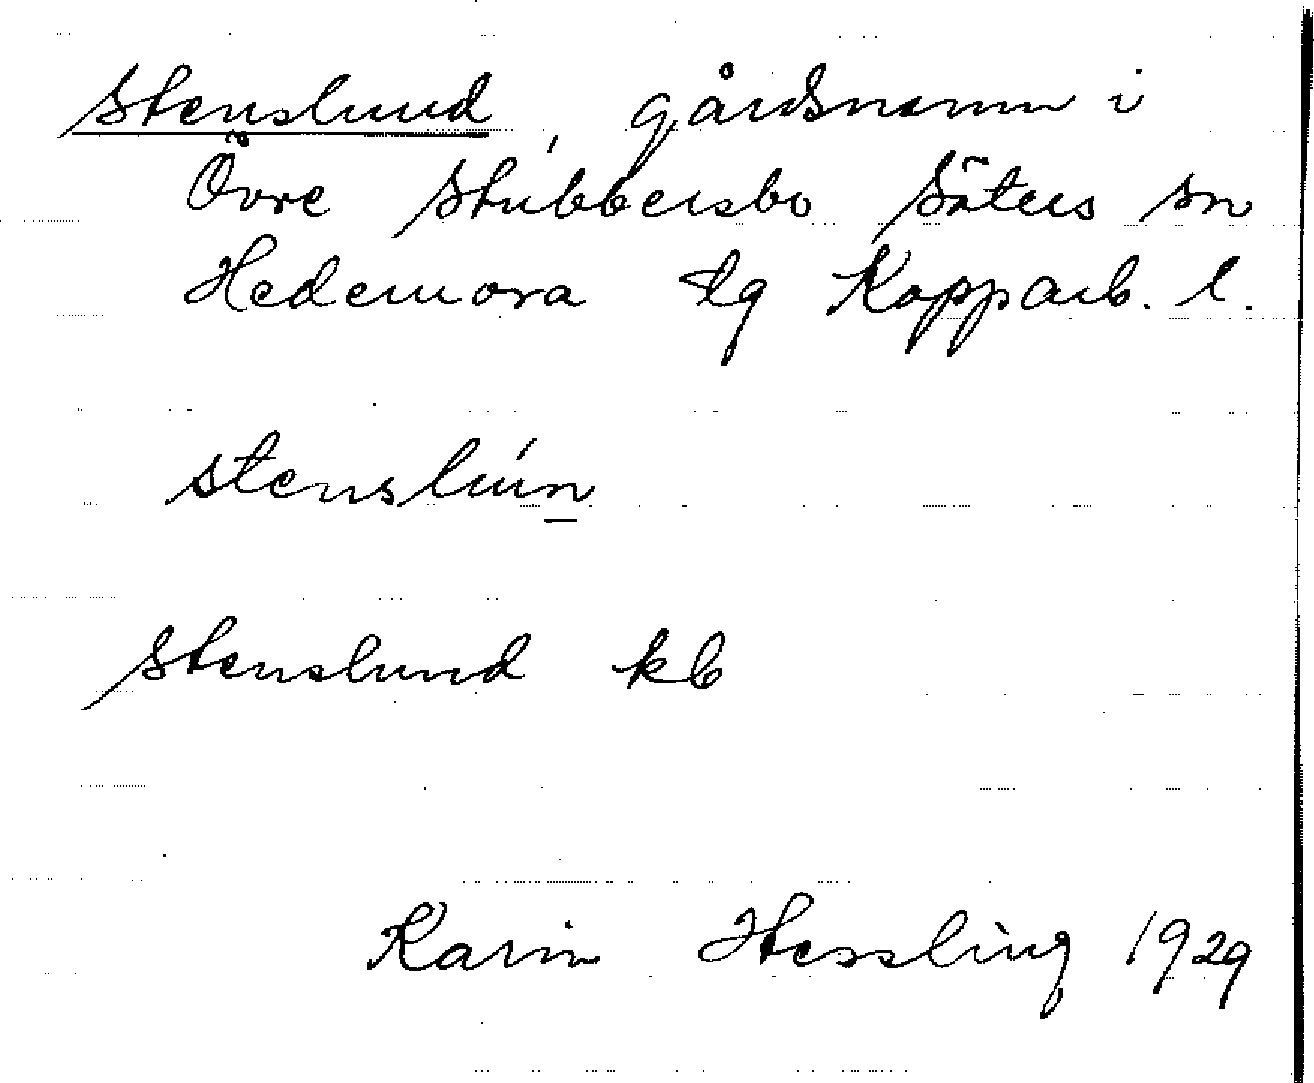 Stenslund, gårdsnamn i
Övre Stubbersbo Säters sn
Hedemora tlg Kopparb. l.
stenslún
Stenslund kb
Karin Hessling 1929